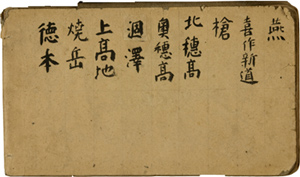 燕
喜作新道
槍
北穂高
奥穂高
涸澤
上高地
焼岳
徳本